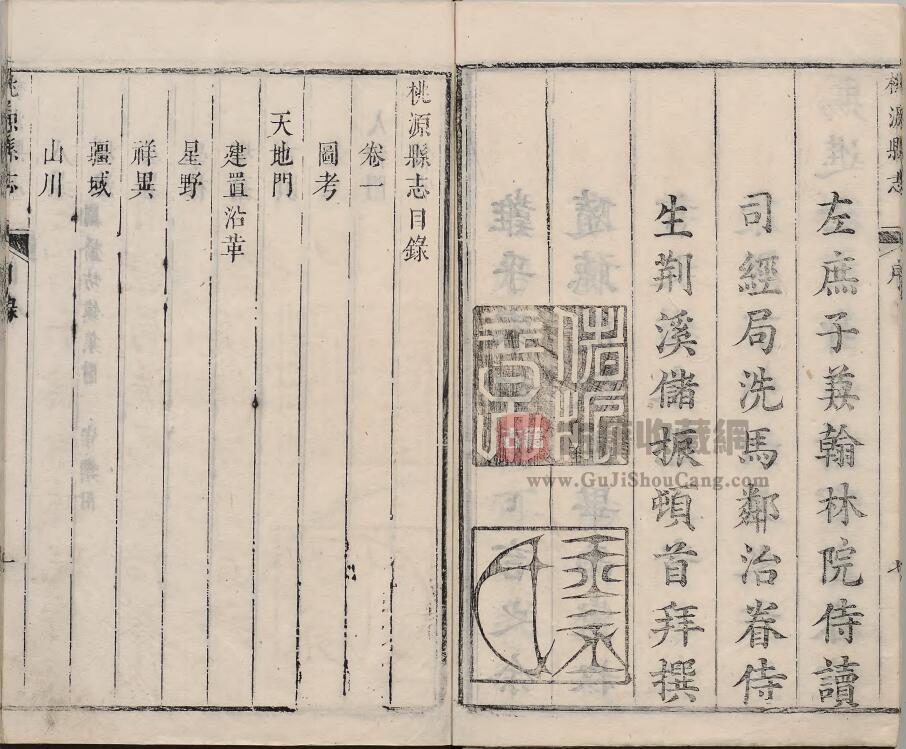 桃源縣志
序
左庶子兼翰林院侍讀
司經局洗馬鄰治眷侍
生荆溪儲振頓首拜撰
古籍收藏網
www.GuJiShouCang.com
桃源縣志目錄
卷一
圖考
天地門
建置沿革
星野
祥異
疆域
山川
桃源縣志
目錄
一